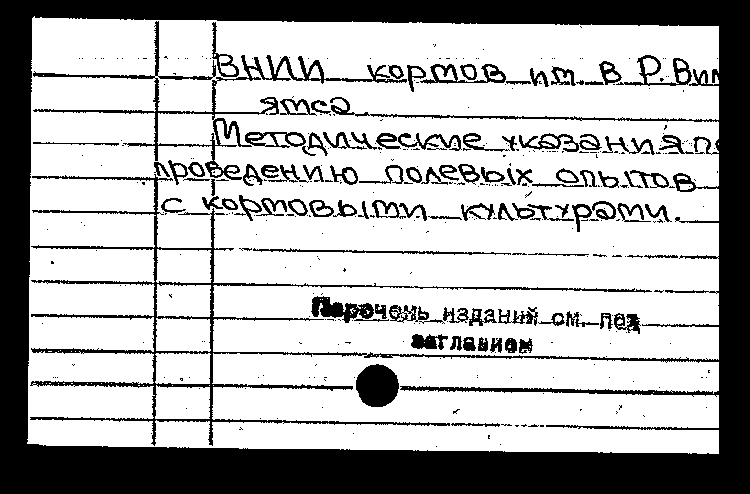 ВНИИ кормов им. В Р. Вил
ямса.
Методические указания по
проведению полевых опытов
с кормовыми культурами.
Перечень изданий см. под
заглавием